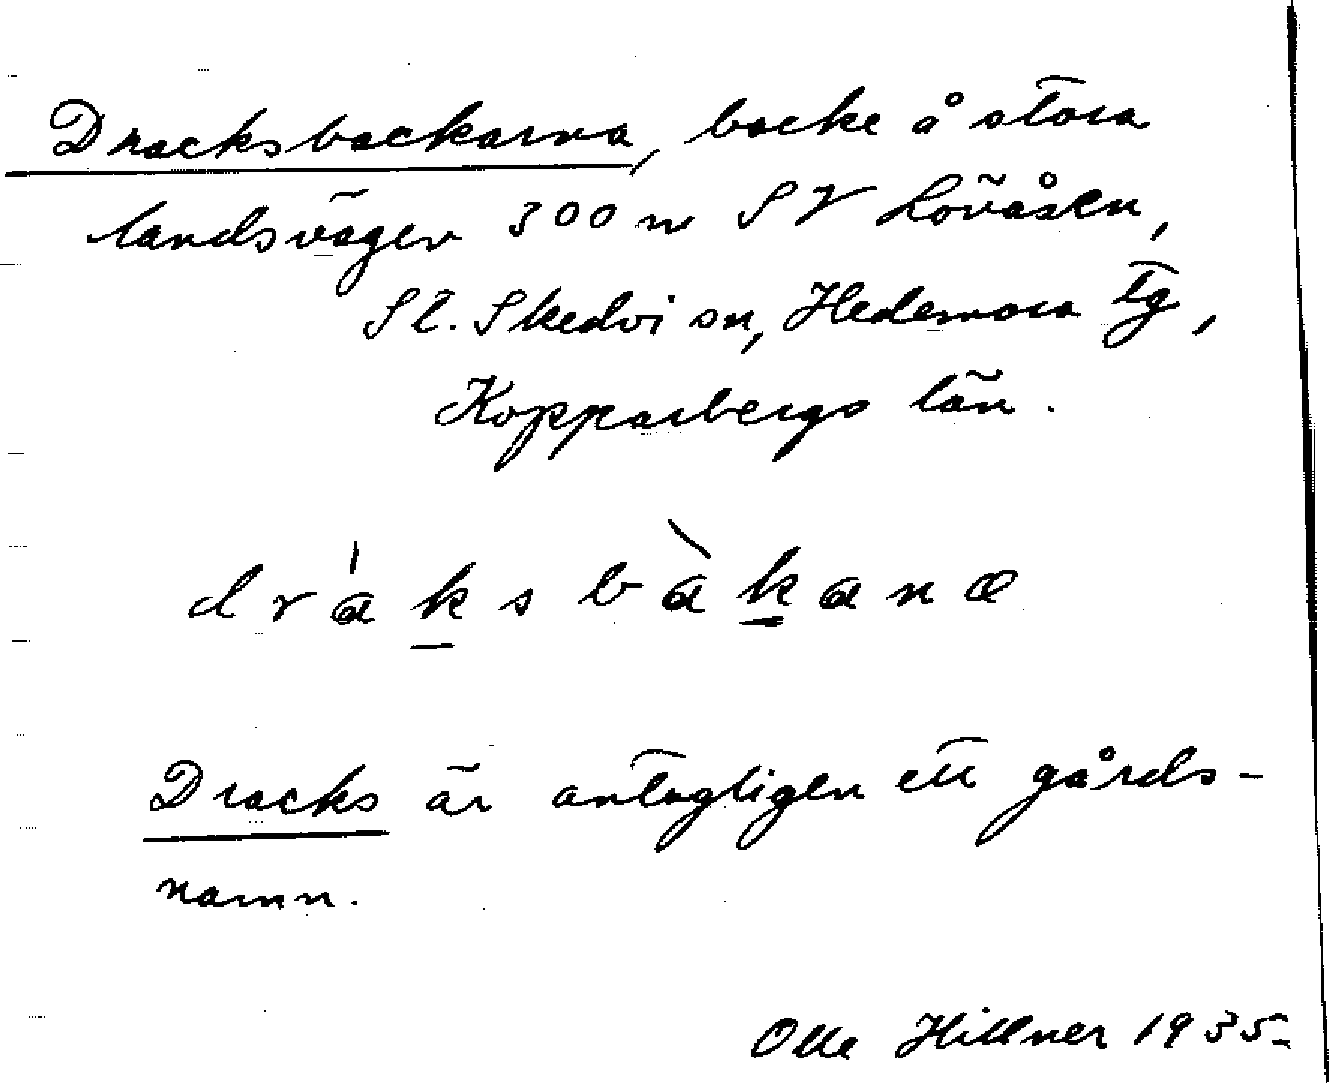 Dracksbackarna, backe å stora
landsvägen 300 m SV Lövåsen,
St. Skedvi sn, Hedemora tg,
Kopparbergs län.
dráksbàkanæ
Dracks är antagligen ett gårds-
namn.
Olle Hillner 1935